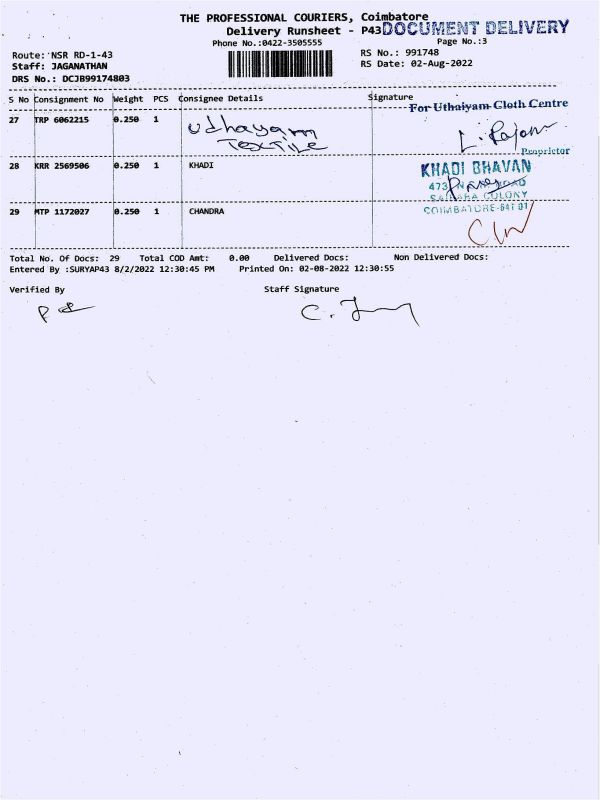 THE PROFESSIONAL COURIERS, Coimbatore
Delivery Runsheet - P43 DOCUMENT DELIVERY
Phone No.:0422-3505555 Page No.:3
Route: NSR RD-1-43 RS No.: 991748
Staff: JAGANATHAN RS Date: 02-Aug-2022
DRS No.: DCJB99174803
S No Consignment No Weight PCS Consignee Details Signature
For Uthaiyam Cloth Centre
27 TRP 6062215 0.250 1 Udhayam
Textile
L. Rajan
Proprietor
28 KRR 2569506 0.250 1 KHADI KHADI BHAVAN
473 ROAD
COLONY
29 MTP 1172027 0.250 1 CHANDRA COIMBATORE-641 01
Total No. Of Docs: 29 Total COD Amt: 0.00 Delivered Docs: Non Delivered Docs:
Entered By :SURYAP43 8/2/2022 12:30:45 PM Printed On: 02-08-2022 12:30:55
Verified By Staff Signature